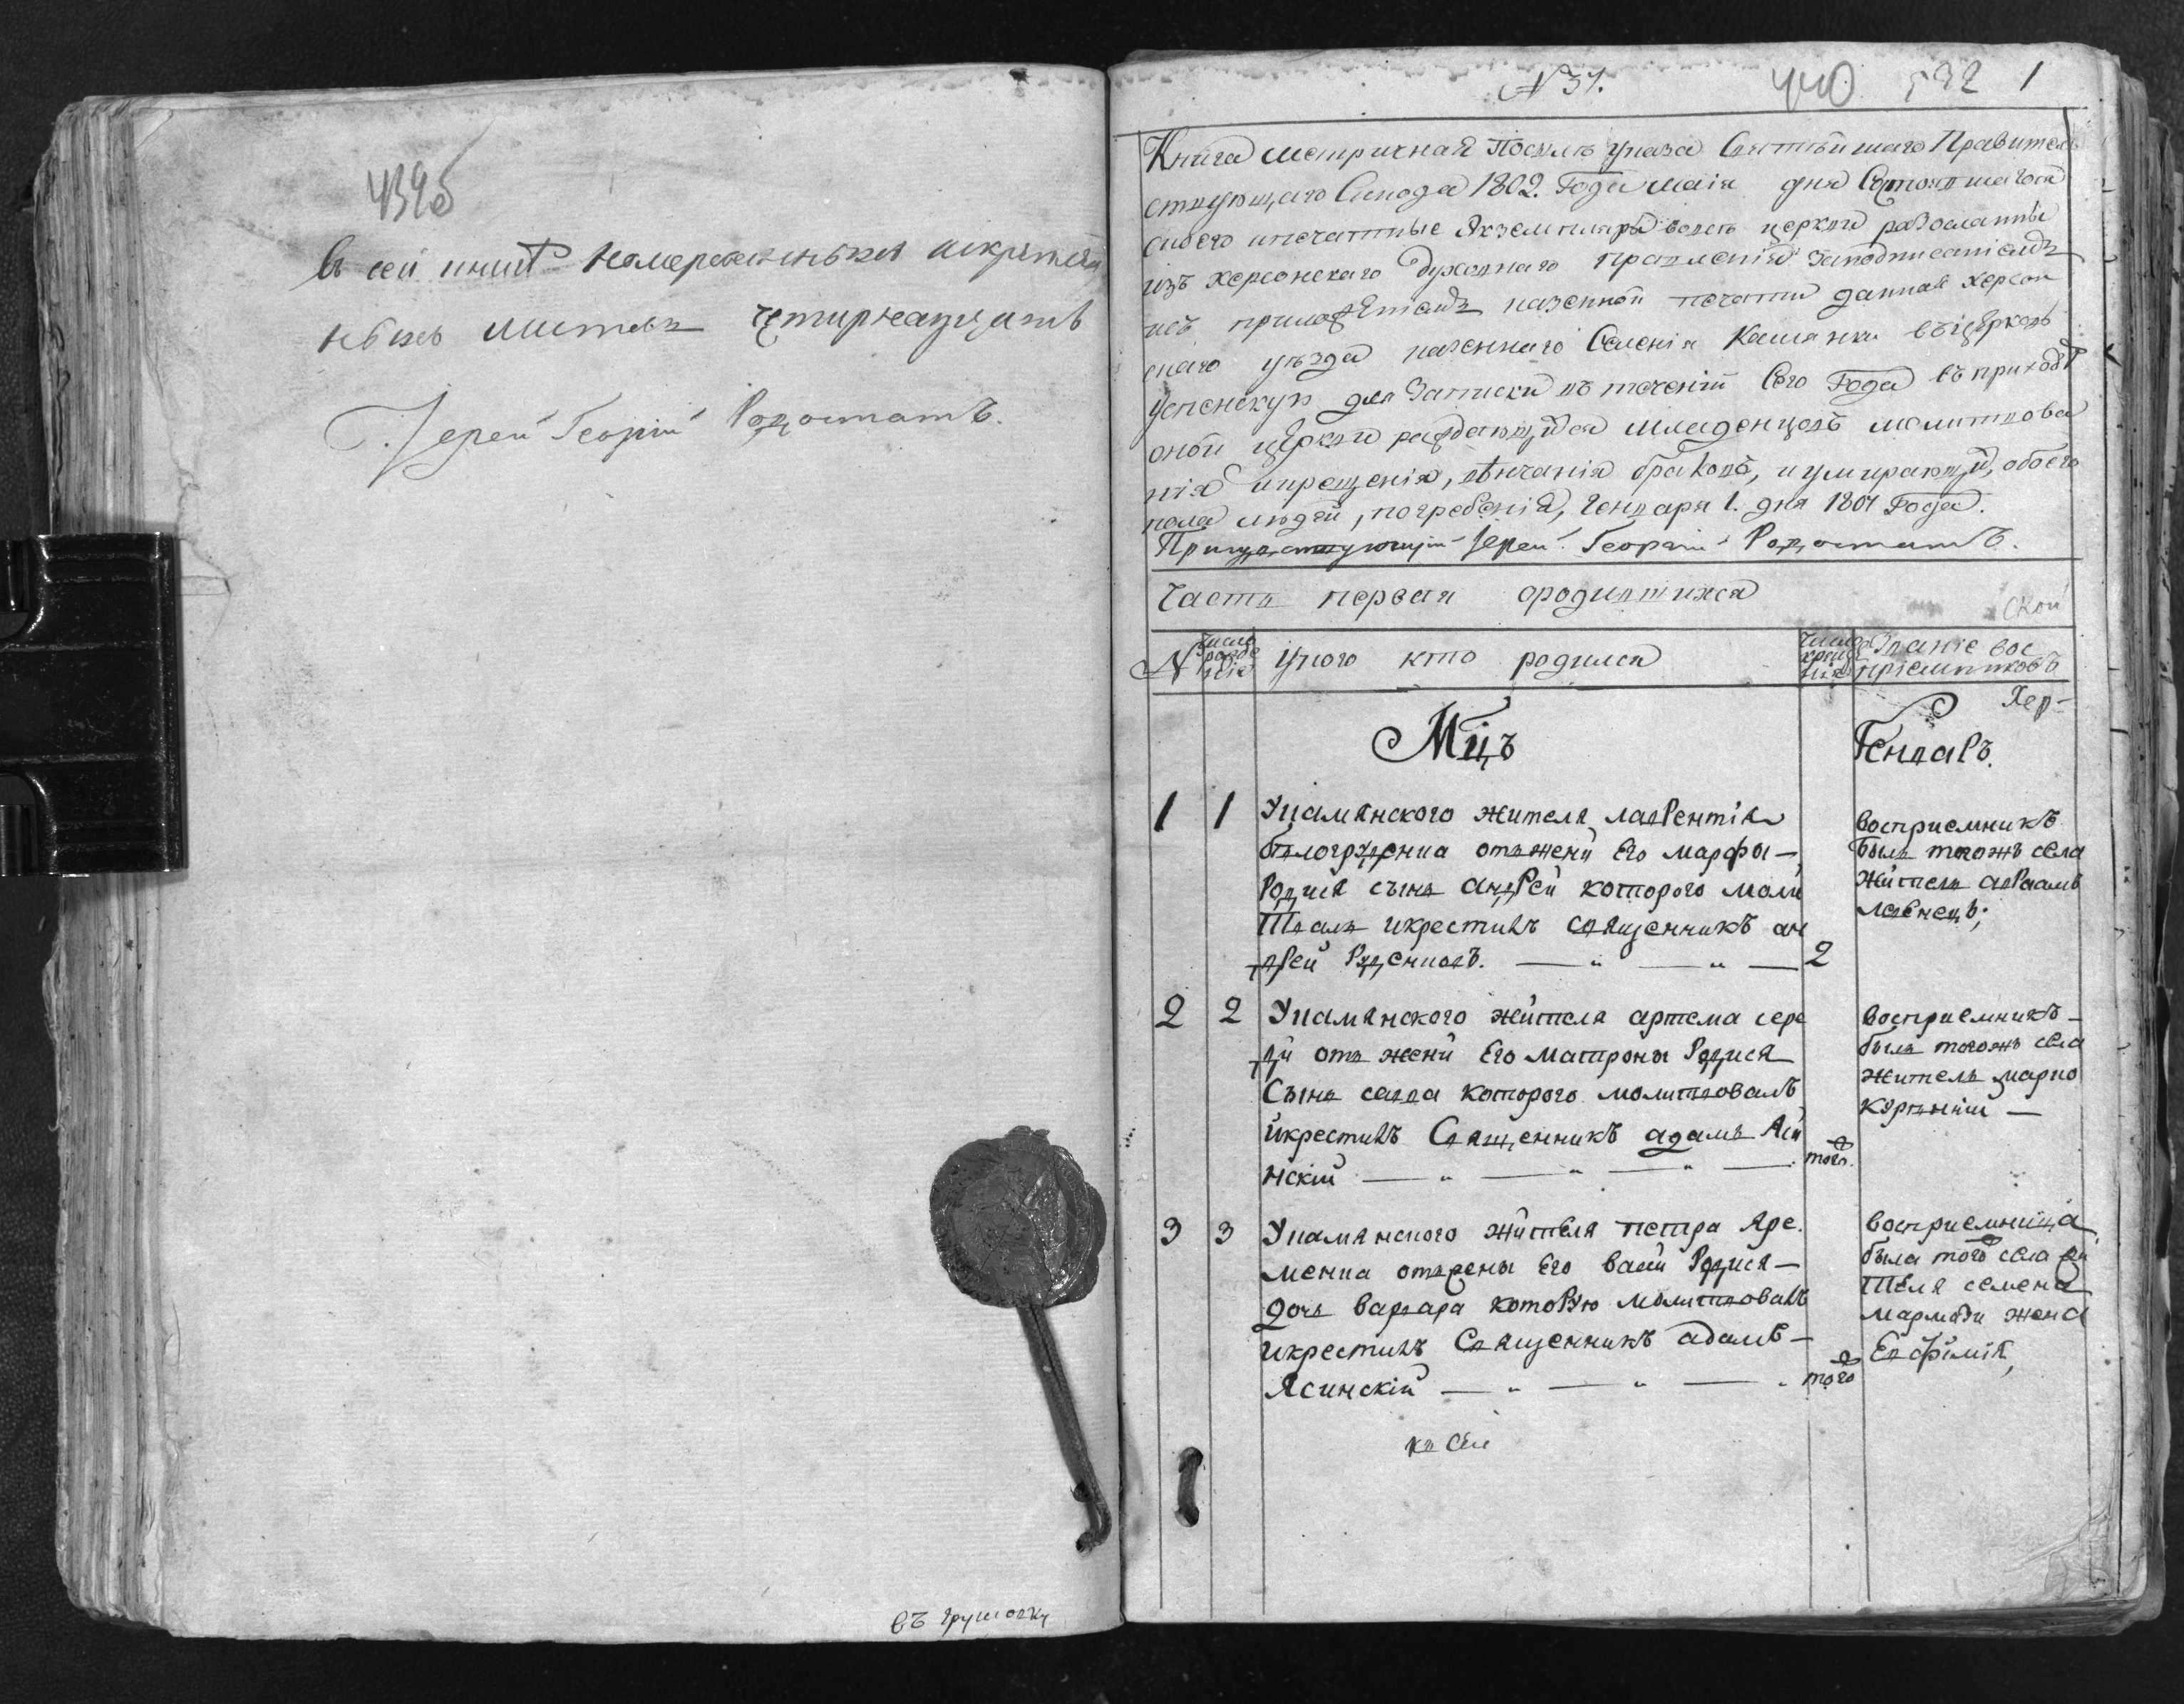 439б
въ сей книгѣ номерованныхъ искрепле
нныхъ листовъ четирнадцать
Іерей Георгій Родостатъ.
въ грушовку
№ 37.
440 592 1
Книга метричная По силѣ указа Святѣйшаго Правитель
ствующаго Синода 1802. Года маія дня Состоявшагося
сиоего ипечатные Экземпляры вовсѣ церкви разосланные
изъ херсонскаго духовнаго правленія заподписаніемъ
исъ приложеніемъ казенной печати данная херсон
скаго уѣзда казеннаго Селенія Камянки въ церковь
успенскую для Записки въ теченіи Сего Года въ приходѣ
оной церкви раждающихся младенцовъ молитвова
нія икрещенія, вѣнчанія браковъ, и умирающихъ, обоего
пола людей, погребенія, Генваря 1. дня 1804 Года.
Присудствующій Іерей Георгій Родостатъ.
Часть первая ородившихся
ской
№ Число рожде нія Укого кто родился Число креще нія Званіе вос пріемниковъ
Хер-
Мцъ Генварь.
1 1 Укамянского жителя лаврентія
білогруденка отжени Его марфы —
Родися сынъ андрей которого моли
твалъ икрестилъ священникъ ан
дрей Руденковъ. — „ — „ — 2
восприемникъ
былъ тогожъ села
житель авраамъ
2 2 Укамянского жителя артема сере
ди отъ жени Его матроны Родися
Сынъ савва которого молитвовалъ
икрестилъ Священникъ адамъ Яси
нскій — „ — „ — „ — того.
восприемникъ —
былъ тогожъ села
житель марко
3 3 Укамянского жителя петра Яре.
менка отжены Его васси Родися —
дочь варвара которую молитвовалъ
икрестилъ Священникъ адамъ —
Ясинскій — „ — „ — „ того
восприемница
была того села жи
теля семена
жена
Евфимія,